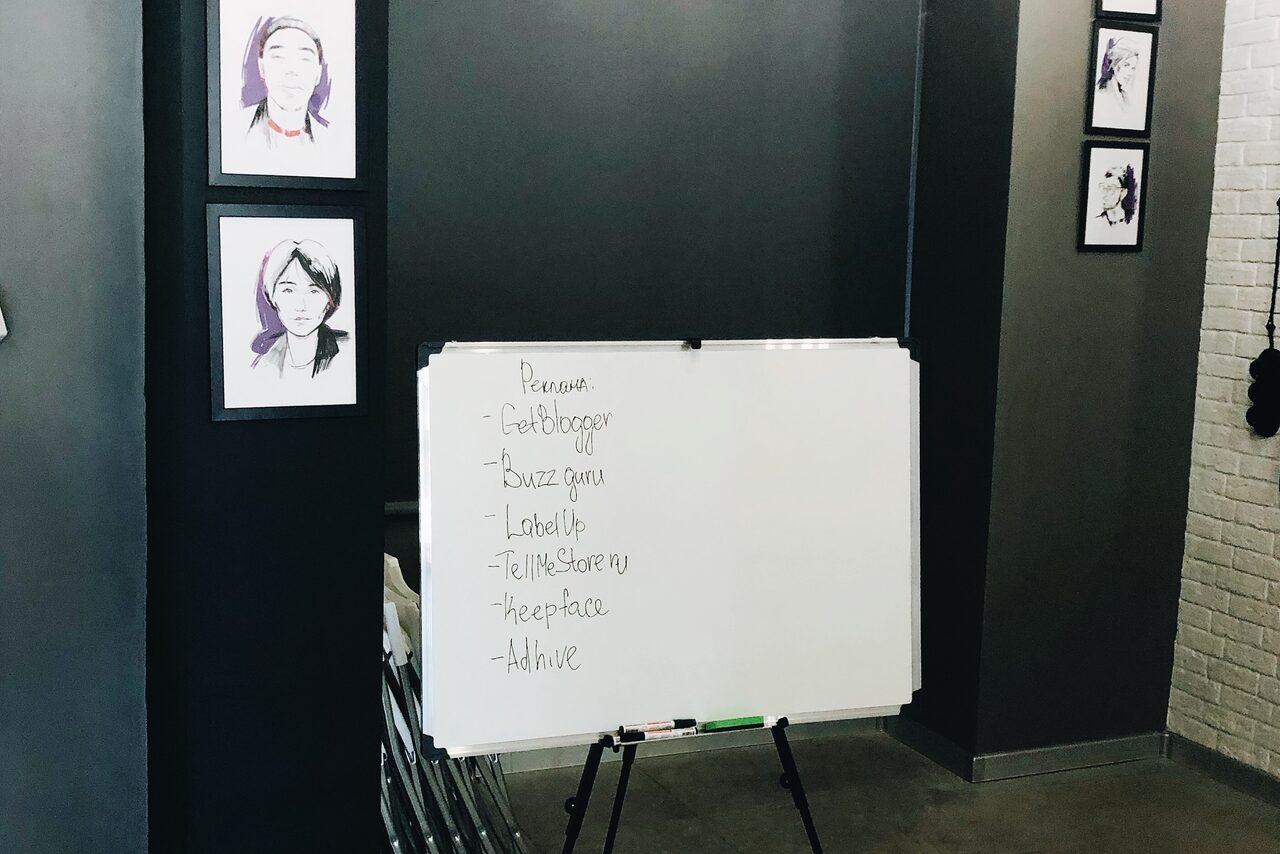 Реклама:
- GetBlogger
- Buzz guru
- LabelUp
- TellMeStore ru
- Keepface
- Adhive